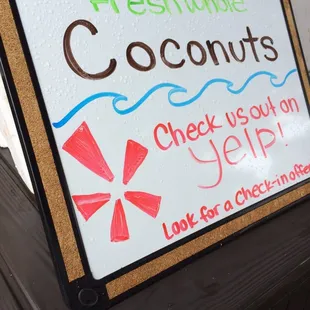 Fresh Whole
Coconuts
Check us out on
yelp!
Look for a check-in offer